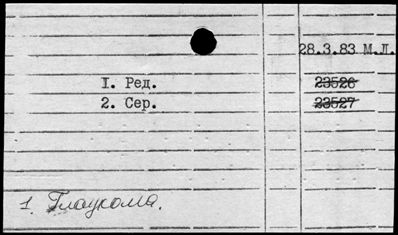 28.3.83 М.Л.
I. Ред. 23526
2. Сер. 23527
1. Глаукома.